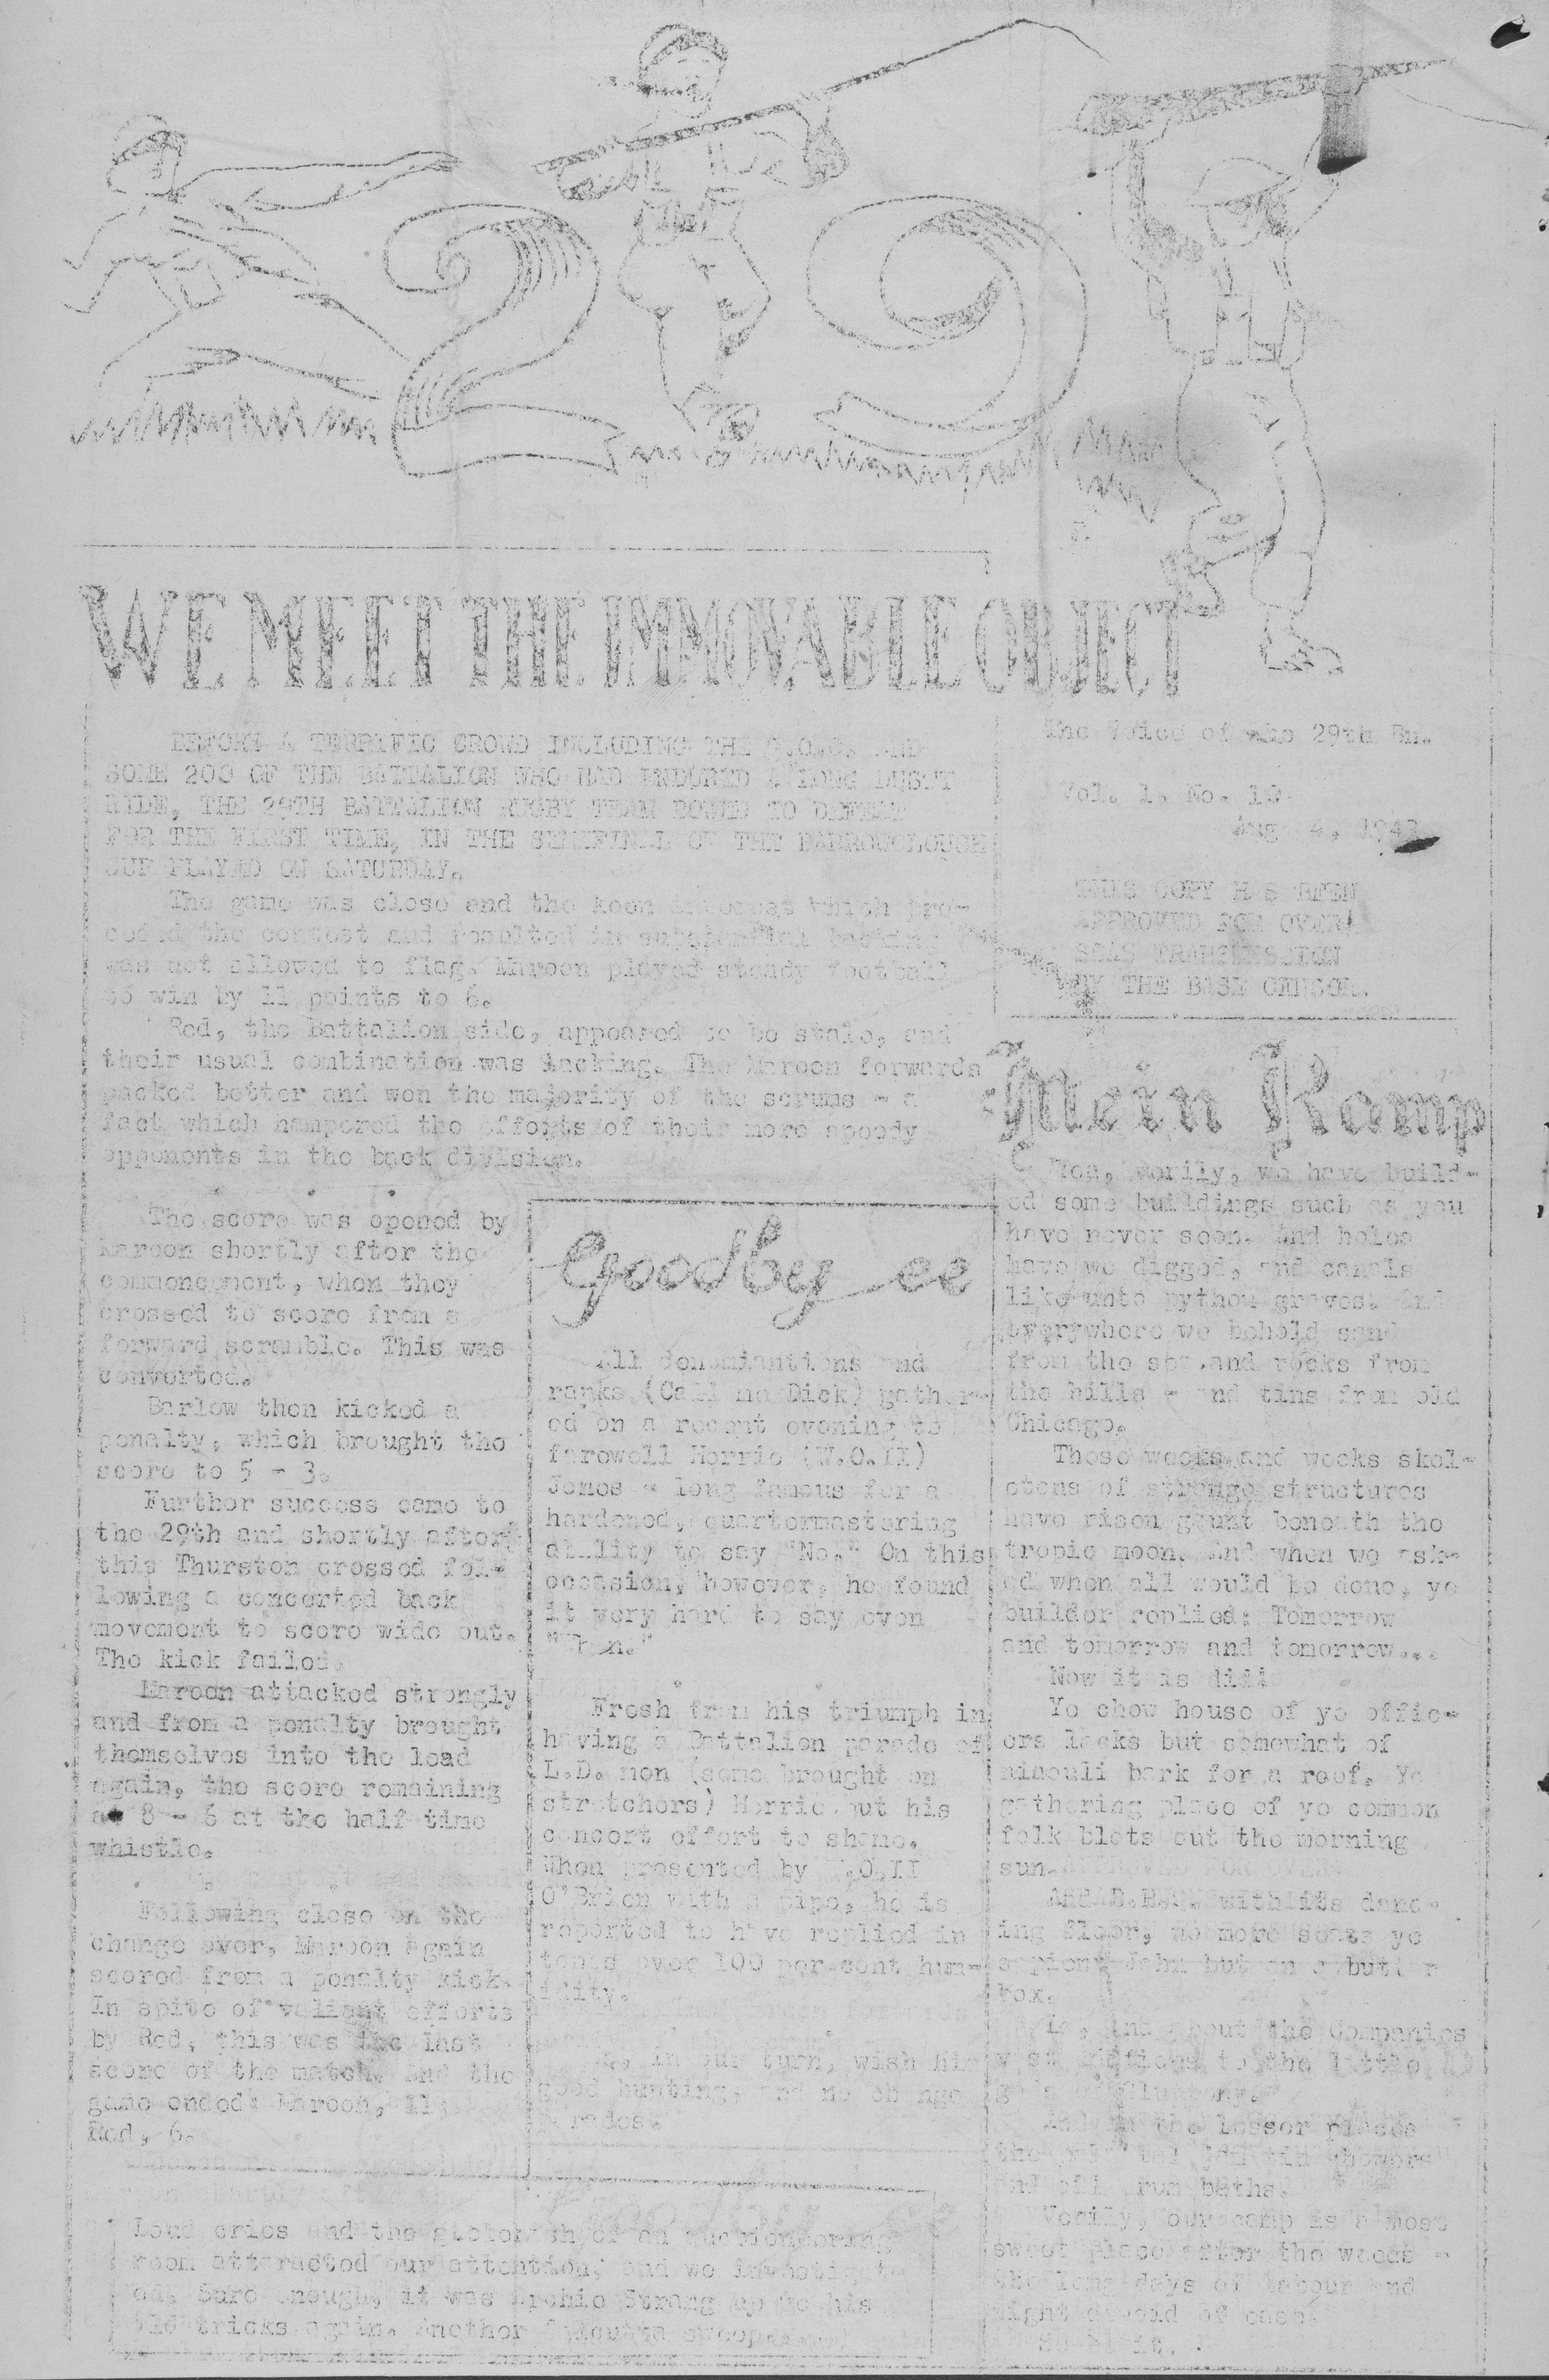 WE MEET THE IMMOVABLE OBJECT
BEFORE A TERRIFIC CROWD INCLUDING THE AND
SOME 200 OF THE BATTALION WHO HAD ENDURED A LONG DUSTY
RIDE, THE 29TH BATTALION RUGBY TEAM BOWED TO DEFEAT
FOR THE FIRST TIME, IN THE SEMIFINAL OF THE BARROWCLOUGH
CUP PLAYED ON SATURDAY.
The game was close and the keen interest which pre-
ceded the contest and resulted in substantial backing
was not allowed to flag. Maroon played steady football
to win by 11 points to 6.
Red, the Battalion side, appeared to be stale, and
their usual combination was lacking. The Maroon forwards
packed better and won the majority of the scrums - a
fact which hampered the efforts of their more speedy
opponents in the back division.
The score was opened by
Maroon shortly after the
commencement, when they
crossed to score from a
forward scramble. This was
converted.
Barlow then kicked a
penalty, which brought the
score to 5 - 3.
Further success came to
the 29th and shortly after
this Thurston crossed fol-
lowing a concerted back
movement to score wide out.
The kick failed.
Maroon attacked strongly
and from a penalty brought
themselves into the lead
again, the score remaining
at 8 - 6 at the half time
whistle.
Following close on the
change over, Maroon again
scored from a penalty kick.
In spite of valiant efforts
by Red, this was the last
score of the match, and the
game ended: Maroon, 11;
Red, 6.
Goodby-ee
All denominantions and
ranks (Call me Dick) gather-
ed on a recent evening to
farewell Horrie (W.O.II)
Jones - long famous for a
hardened, quartermastering
ability to say "No." On this
occasion, however, he found
it very hard to say even
"When."
Fresh from his triumph in
having a Battalion parade of
L.D. men (some brought on
stretchers) Horrie put his
concert effort to shame.
When presented by W.O.II
O'Brien with a pipe, he is
reported to have replied in
tones over 100 per-cent hum-
idity.
We, in our turn, wish him
good hunting, and no change
parades.
Loud cries and the of an auctioneering
room attracted our attention, and we investigat-
ed. Sure enough, it was Archie Strang up to his
old tricks again. Another swoop.
The Voice of the 29th Bn.
Vol. 1. No. 10.
Aug 4, 1943
THIS COPY HAS BEEN
APPROVED FOR OVER-
SEAS TRANSMISSION
BY THE BASE CENSOR.
Mein Kamp
Yea, verily, we have build-
ed some buildings such as you
have never seen. And holes
have we digged, and canals
like unto python graves. And
everywhere we behold sand
from the sea and rocks from
the hills - and tins from old
Chicago.
These weeks and weeks skel-
etons of strange structures
have risen gaunt beneath the
tropic moon. And when we ask-
ed when all would be done, ye
builder replied: Tomorrow
and tomorrow and tomorrow...
Now it is did!
Ye chow house of ye offic-
ers lacks but somewhat of
niaouli bark for a roof. Ye
gathering place of ye common
folk blots out the morning
sun.
And with its danc-
ing floor, no more seats ye
John but on a butter
box.
Lo, and about the Companies
to the little
And in the lesser places
showers
and oil drum baths.
Verily, our camp is a most
sweet place after the weeks -
the long days of labour and
night devoid of ease.